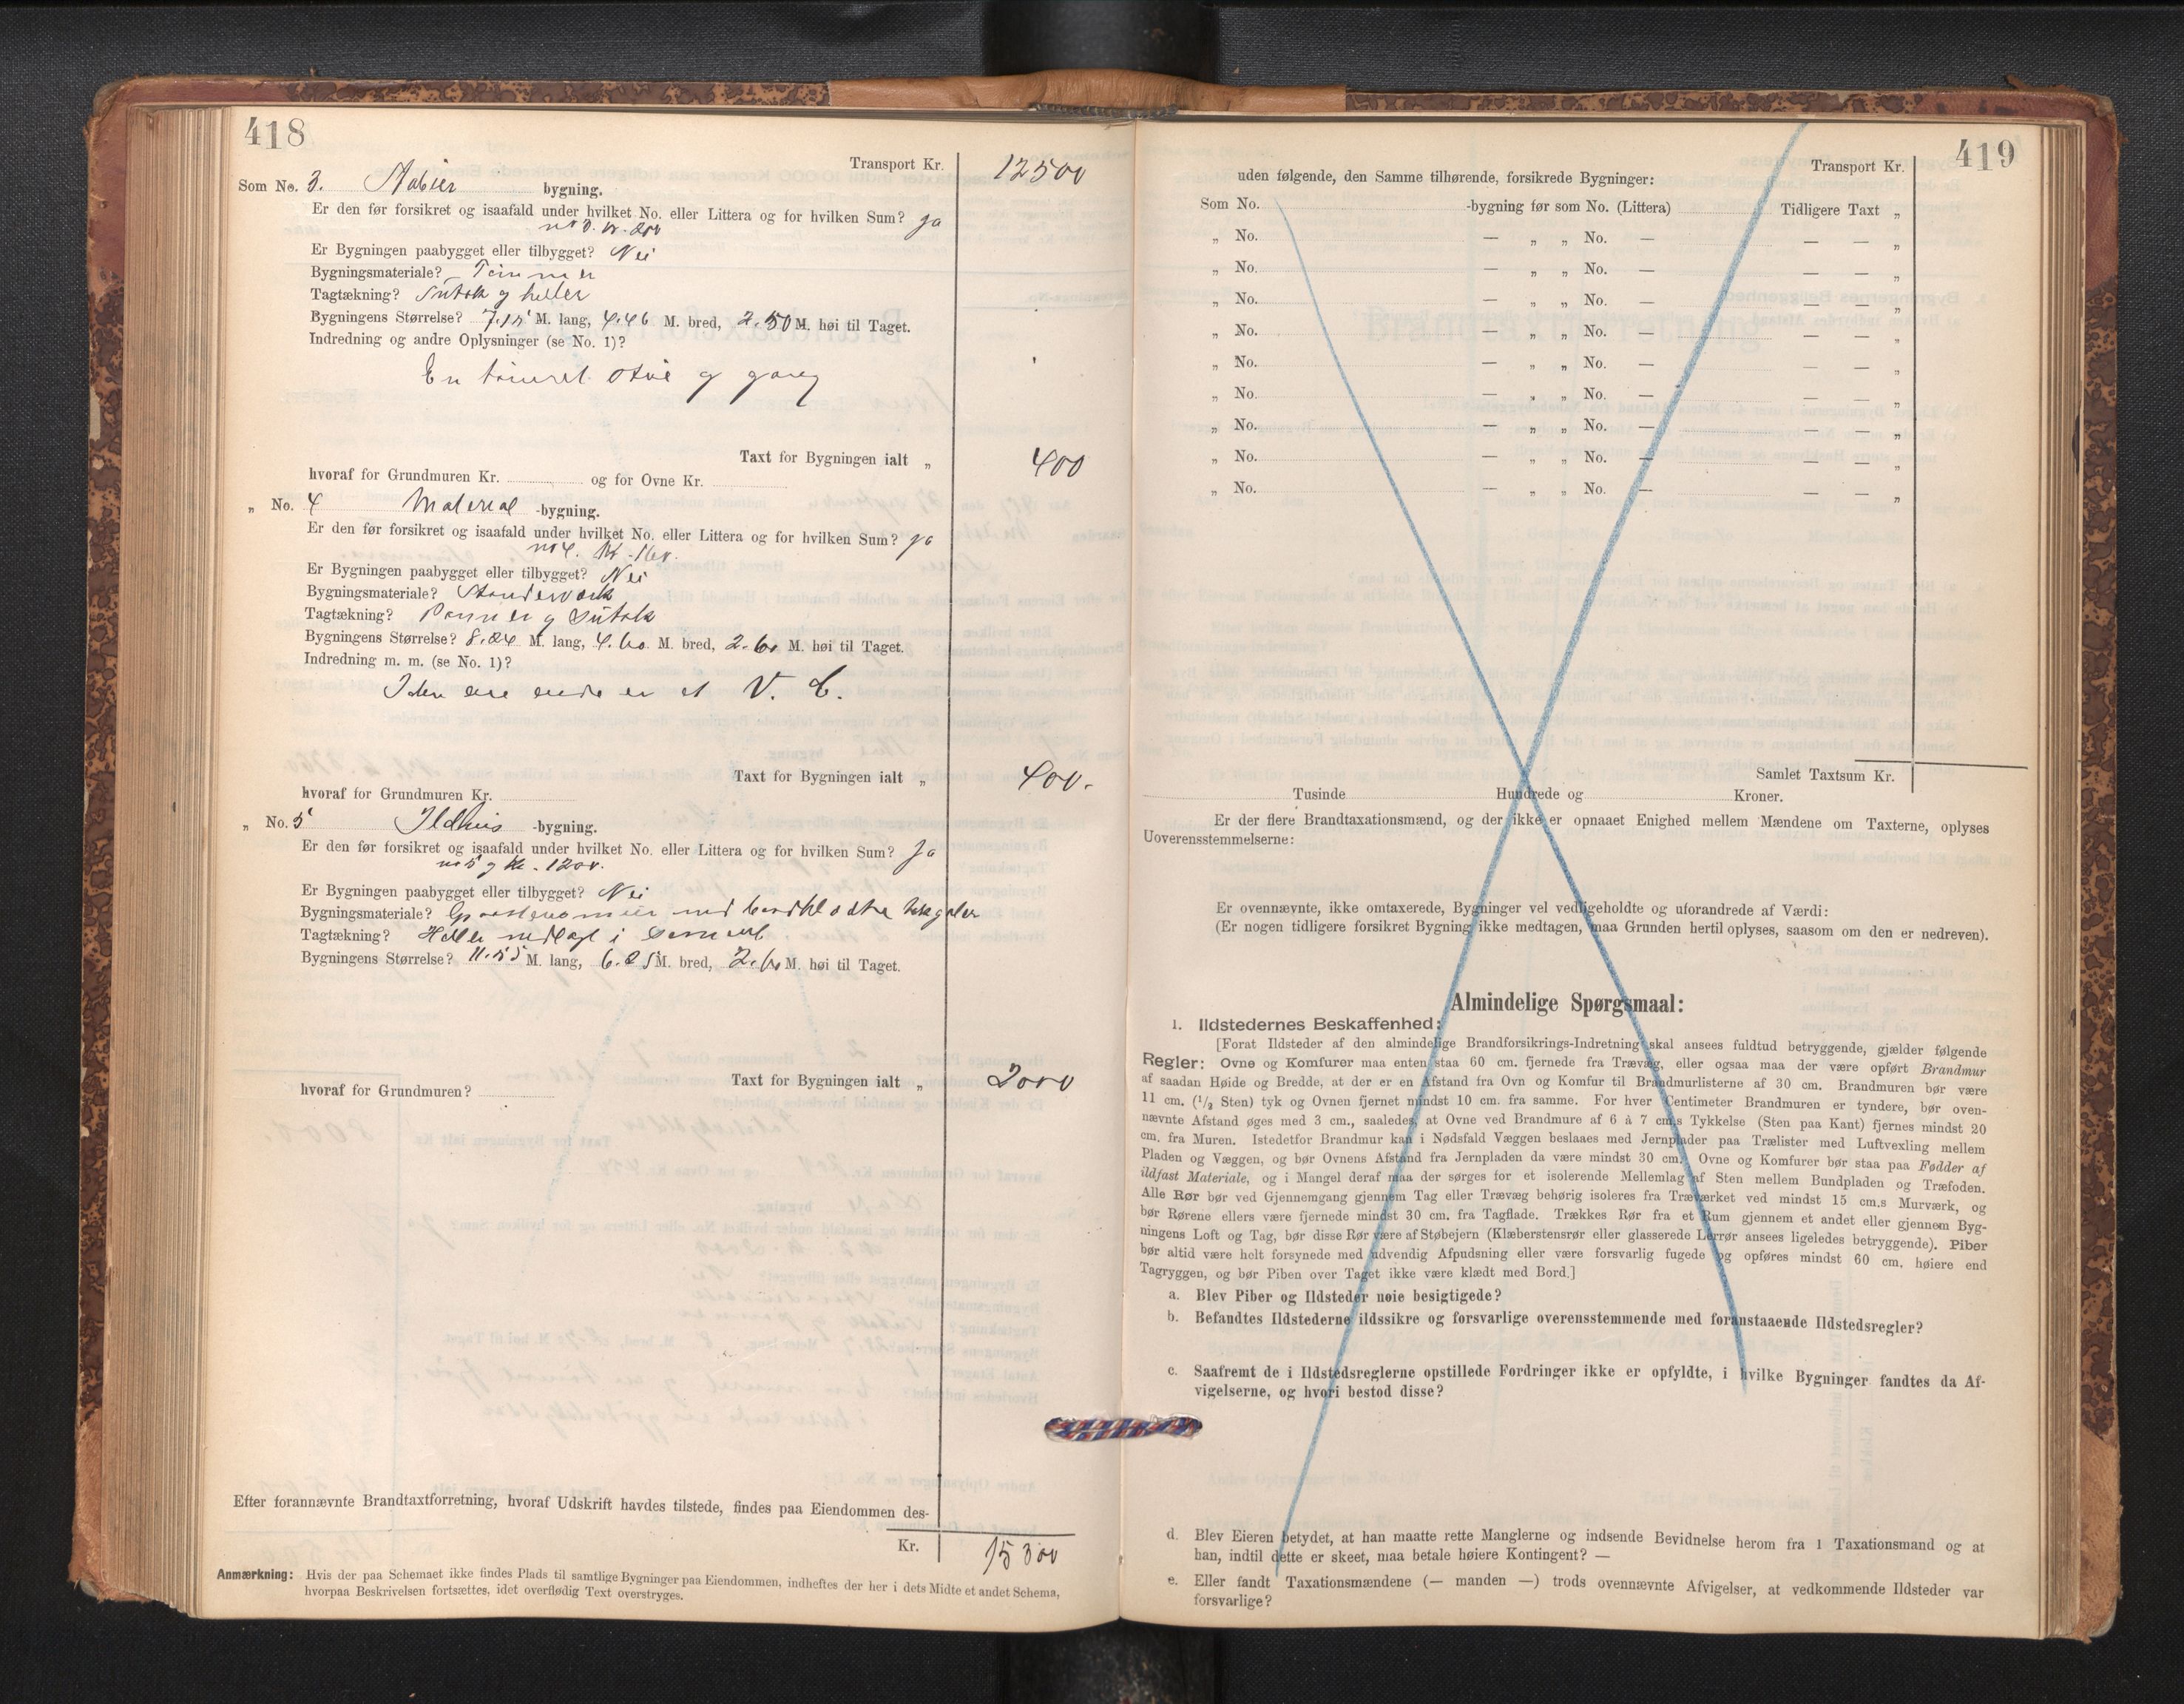 418
Transport Kr. 12500
Som No. 3. Stabur bygning.
Er den før forsikret og isaafald under hvilket No. eller Littera og for hvilken Sum? Ja
no 3. kr. 200
Er Bygningen paabygget eller tilbygget? Nei
Bygningsmateriale? Tømmer
Tagtækning? Sutak og heller
Bygningens Størrelse? 7.15 M. lang, 4.46 M. bred, 2.50 M. høi til Taget.
Indredning og andre Oplysninger (se No. 1)?
En tømret stue og gang
Taxt for Bygningen ialt „ 400
hvoraf for Grundmuren Kr. og for Ovne Kr.
„ No. 4 Material -bygning.
Er den før forsikret og isaafald under hvilket No. eller Littera og for hvilken Sum? Ja
no 4. kr. 160.
Er Bygningen paabygget eller tilbygget? Nei
Bygningsmateriale? Standerværk
Tagtækning? Panner og Sutak
Bygningens Størrelse? 8.84 M. lang, 4.60 M. bred, 2.60 M. høi til Taget.
Indredning m. m. (se No. 1)?
I den ene ende er et V. C.
Taxt for Bygningen ialt „ 400.
hvoraf for Grundmuren Kr.
„ No. 5 Ildhus -bygning.
Er den før forsikret og isaafald under hvilket No. eller Littera og for hvilken Sum? Ja
no 5 og kr. 1200.
Er Bygningen paabygget eller tilbygget? Nei
Bygningsmateriale? Graastensmur med bordklædte
Tagtækning? Heller nedlagt i Cement
Bygningens Størrelse? 11.55 M. lang, 6.85 M. bred, 2.60 M. høi til Taget.
Taxt for Bygningen ialt „ 2000
hvoraf for Grundmuren?
Efter forannævnte Brandtaxtforretning, hvoraf Udskrift havdes tilstede, findes paa Eiendommen des-
Kr. 15300
Anmærkning: Hvis der paa Schemaet ikke findes Plads til samtlige Bygninger paa Eiendommen, indheftes der her i dets Midte et andet Schema,
hvorpaa Beskrivelsen fortsættes, idet overflødig Text overstryges.
419
Transport Kr.
uden følgende, den Samme tilhørende, forsikrede Bygninger:
Som No. -bygning før som No. (Littera) Tidligere Taxt „
„ No. — „ „ No. — — — „
„ No. — „ „ No. — — — „
„ No. — „ „ No. — — — „
„ No. — „ „ No. — — — „
„ No. — „ „ No. — — — „
„ No. — „ „ No. — — — „
„ No. — „ „ No. — — — „
„ No. — „ „ No. — — — „
„ No. — „ „ No. — — — „
Samlet Taxtsum Kr.
Tusinde Hundrede og Kroner.
Er der flere Brandtaxationsmænd, og der ikke er opnaaet Enighed mellem Mændene om Taxterne, oplyses
Uoverensstemmelserne:
Er ovennævnte, ikke omtaxerede, Bygninger vel vedligeholdte og uforandrede af Værdi:
(Er nogen tidligere forsikret Bygning ikke medtagen, maa Grunden hertil oplyses, saasom om den er nedreven).
Almindelige Spørgsmaal:
1. Ildstedernes Beskaffenhed:
[Forat Ildsteder af den almindelige Brandforsikrings-Indretning skal ansees fuldtud betryggende, gjælder følgende
Regler: Ovne og Komfurer maa enten staa 60 cm. fjernede fra Trævæg, eller ogsaa maa der være opført Brandmur
af saadan Høide og Bredde, at der er en Afstand fra Ovn og Komfur til Brandmurlisterne af 30 cm. Brandmuren bør være
11 cm. (1/2 Sten) tyk og Ovnen fjernet mindst 10 cm. fra samme. For hver Centimeter Brandmuren er tyndere, bør oven-
nævnte Afstand øges med 3 cm., saaledes, at Ovne ved Brandmure af 6 à 7 cm.s Tykkelse (Sten paa Kant) fjernes mindst 20
cm. fra Muren. Istedetfor Brandmur kan i Nødsfald Væggen beslaaes med Jernplader paa Trælister med Luftvexling mellem
Pladen og Væggen, og bør Ovnens Afstand fra Jernpladen da være mindst 30 cm. Ovne og Komfurer bør staa paa Fødder af
ildfast Materiale, og i Mangel deraf maa der sørges for et isolerende Mellemlag af Sten mellem Bundpladen og Træfoden.
Alle Rør bør ved Gjennemgang gjennem Tag eller Trævæg behørig isoleres fra Træværket ved mindst 15 cm.s Murværk, og
bør Rørene ellers være fjernede mindst 30 cm. fra Tagflade. Trækkes Rør fra et Rum gjennem et andet eller gjennem Byg-
ningens Loft og Tag, bør disse Rør være af Støbejern (Klæberstensrør eller glasserede Lerrør ansees ligeledes betryggende). Piber
bør altid være helt forsynede med udvendig Afpudsning eller være forsvarlig fugede og opføres mindst 60 cm. høiere end
Tagryggen, og bør Piben over Taget ikke være klædt med Bord.]
a. Blev Piber og Ildsteder nøie besigtigede?
b. Befandtes Ildstederne ildssikre og forsvarlige overensstemmende med foranstaaende Ildstedsregler?
c. Saafremt de i Ildstedsreglerne opstillede Fordringer ikke er opfyldte, i hvilke Bygninger fandtes da Af-
vigelserne, og hvori bestod disse?
d. Blev Eieren betydet, at han maatte rette Manglerne og indsende Bevidnelse herom fra 1 Taxationsmand og at
han, indtil dette er skeet, maa betale høiere Kontingent? —
e. Eller fandt Taxationsmændene (— manden —) trods ovennævnte Afvigelser, at vedkommende Ildsteder var
forsvarlige?